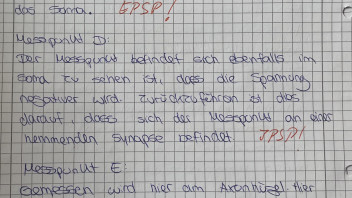 das Soma. EPSP!
Messpunkt D:
Der Messpunkt befindet sich ebenfalls im
Soma zu sehen ist, dass die Spannung
negativer wird. Zurückzuführen ist dies
darauf, dass sich der Messpunkt an einer
hemmenden Synapse befindet. IPSP!
Messpunkt E:
Gemessen wird hier am Axonhügel. Hier